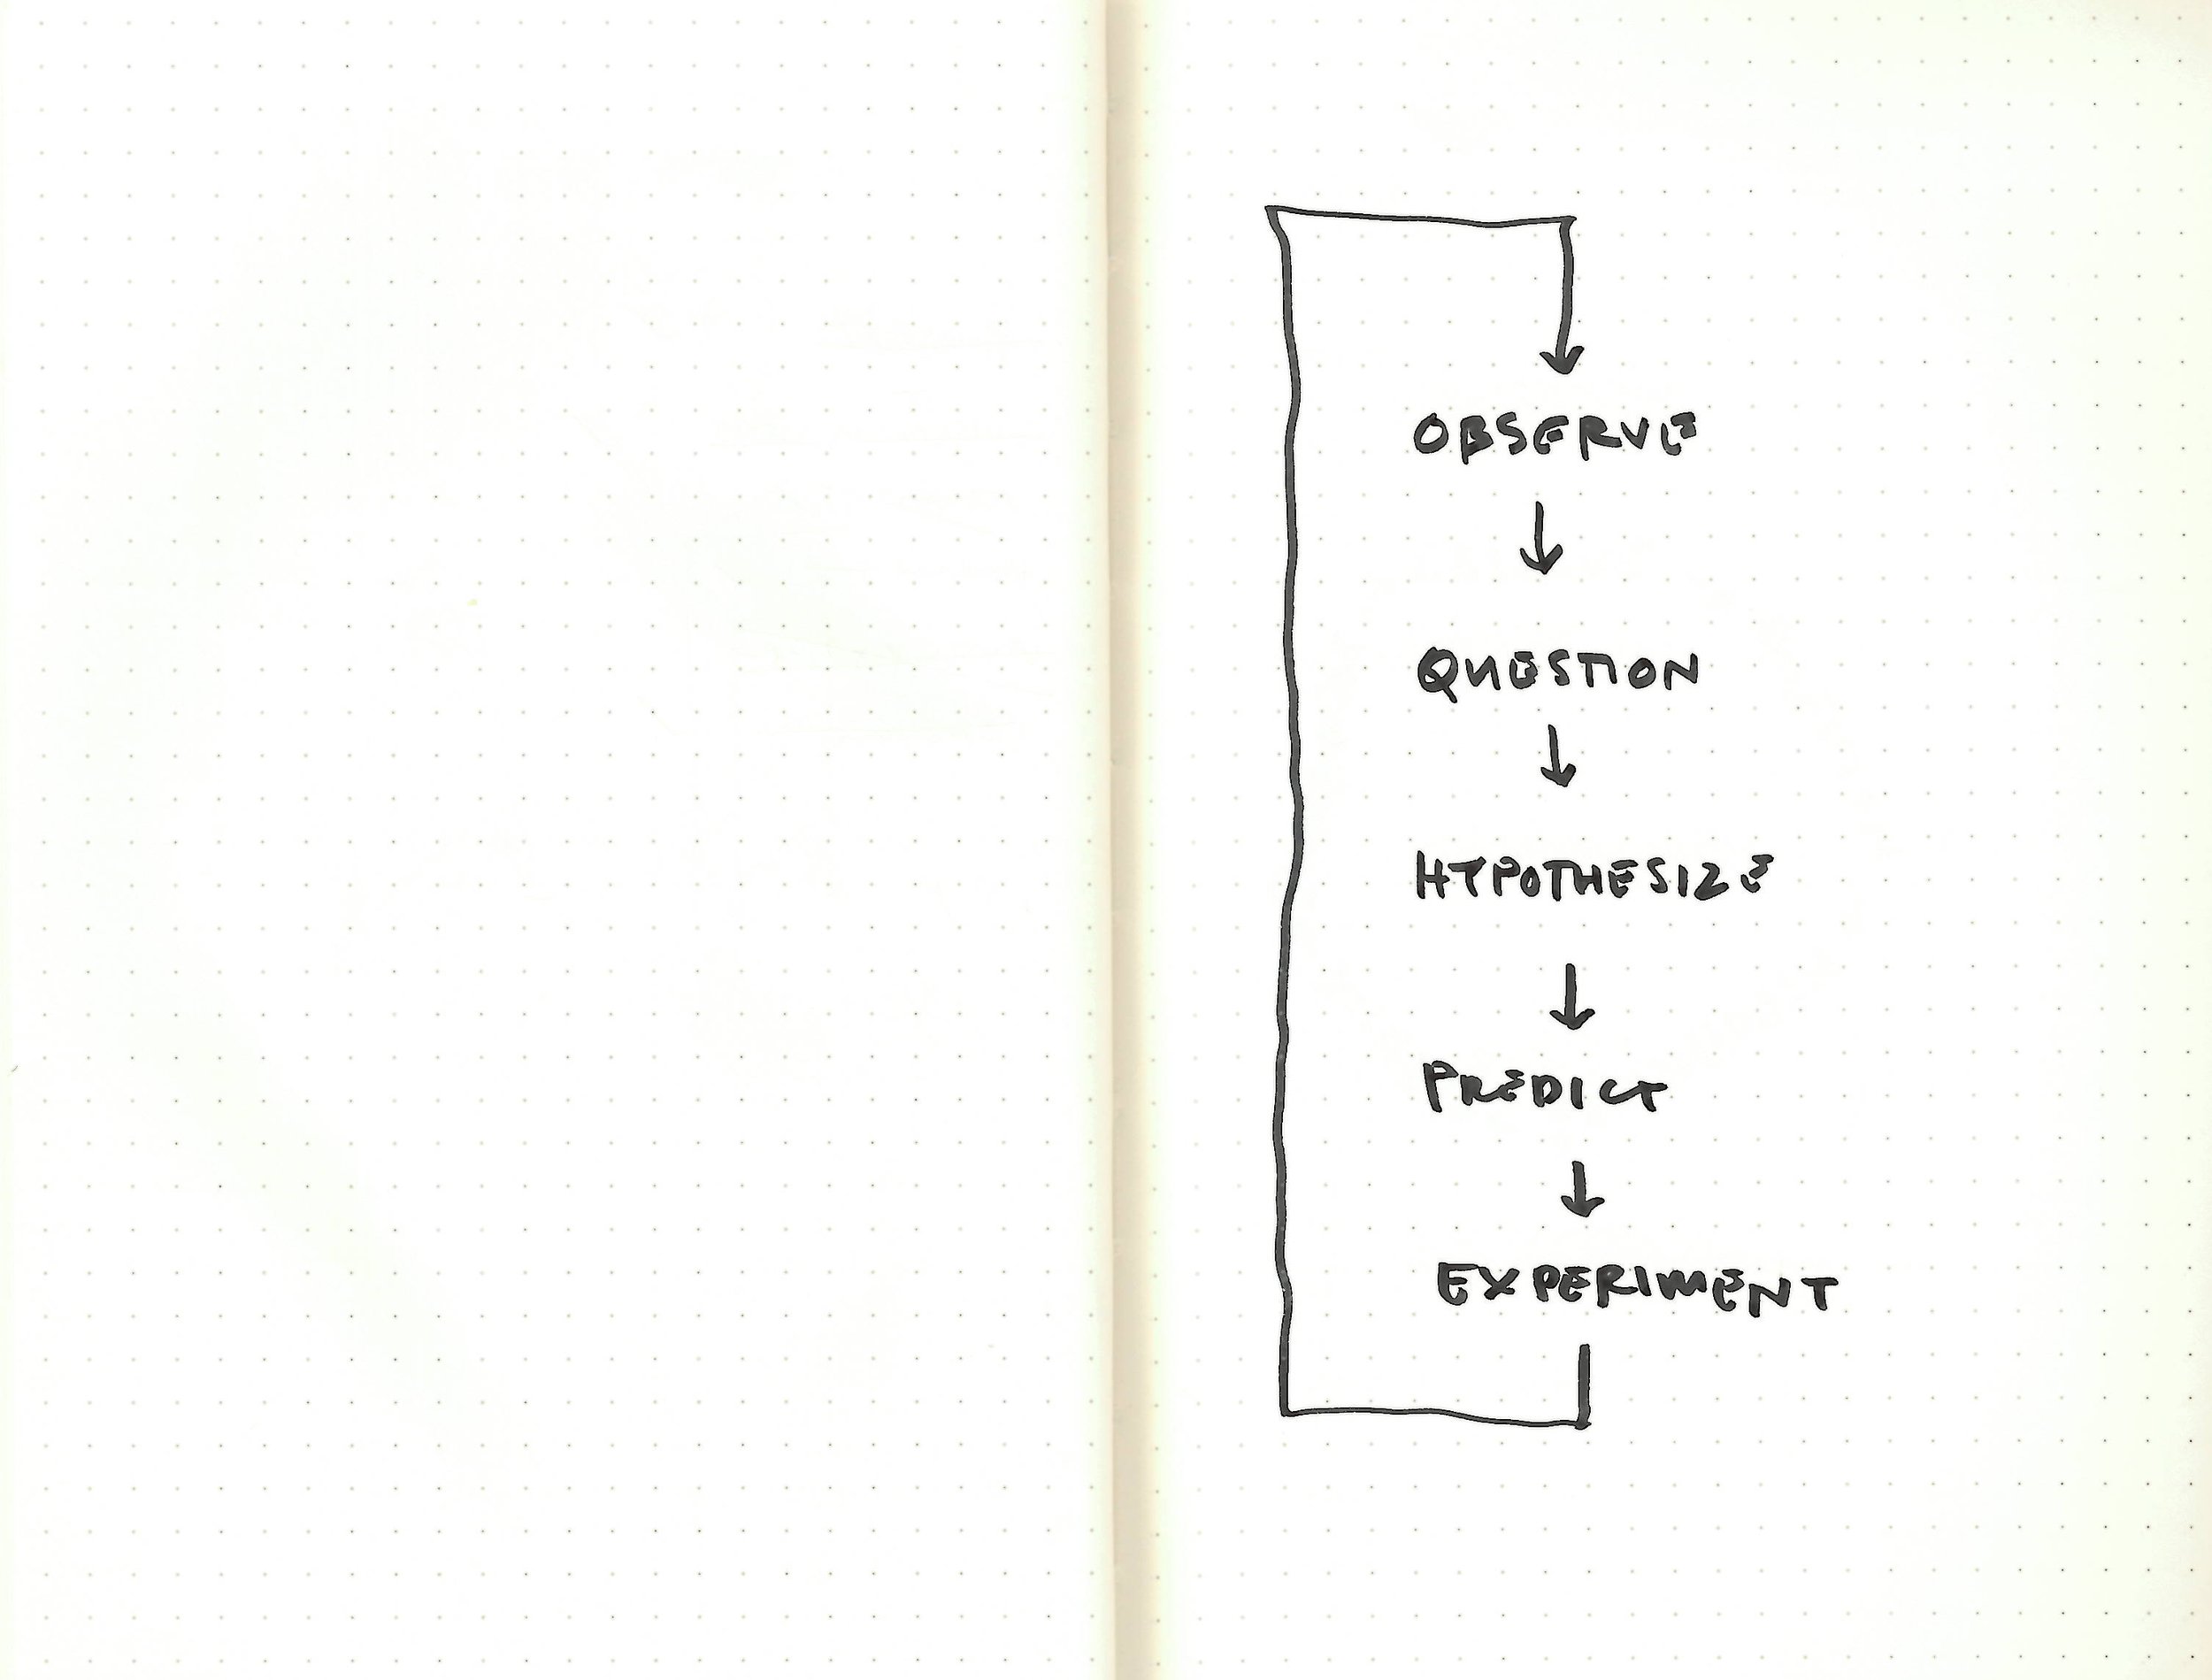 OBSERVE
QUESTION
HYPOTHESIZE
PREDICT
EXPERIMENT